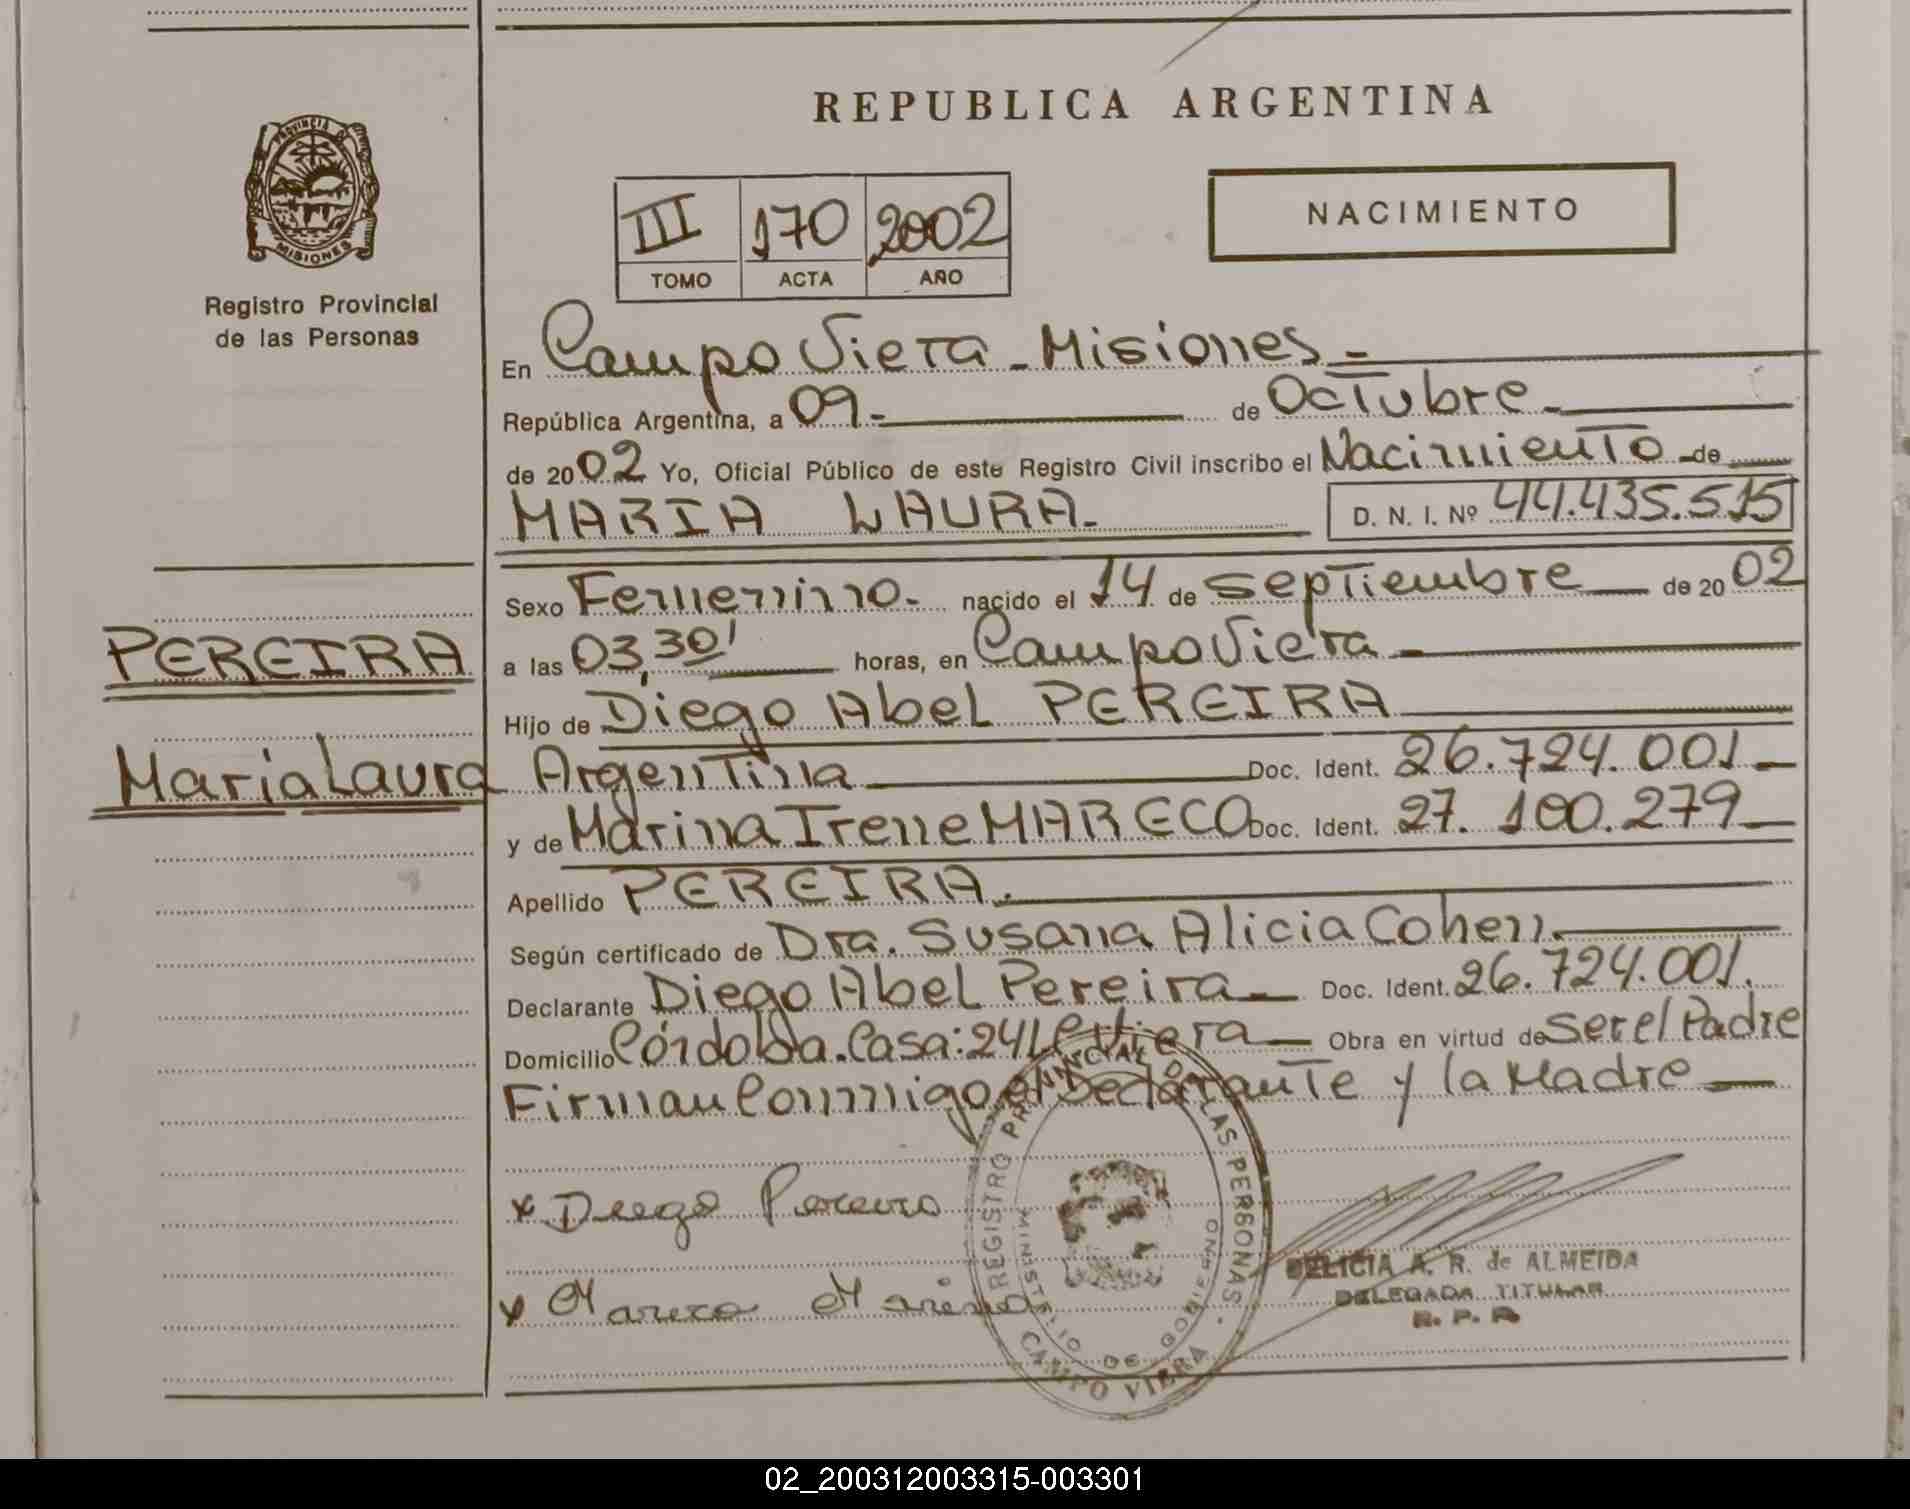 REPUBLICA ARGENTINA
PROVINCIA DE
MISIONES
Registro Provincial
de las Personas
III 170 2002
TOMO ACTA AÑO
NACIMIENTO
En Campo Viera - Misiones -
República Argentina, a 09- de Octubre-
de 2002 Yo, Oficial Público de este Registro Civil inscribo el Nacimiento -de
MARIA LAURA- D. N. I. Nº 44.435.515
Sexo Femenino- nacido el 14 de septiembre de 2002
PEREIRA
a las 03,30' horas, en Campo Viera -
Hijo de Diego Abel PEREIRA
Maria Laura
Argentina Doc. Ident. 26.724.001 -
y de Marina Irene MARECO Doc. Ident. 27. 100.279 -
Apellido PEREIRA.
Según certificado de Dra. Susana Alicia Cohen.
Declarante Diego Abel Pereira - Doc. Ident. 26.724.001.
Domicilio Córdoba. Casa: 241 Viera - Obra en virtud de ser el Padre
Firman Conmigo el Declarante y la Madre -
x Diego Pereira
x Mareco Marina
REGISTRO PROVINCIAL DE LAS PERSONAS
MINISTERIO DE GOBIERNO
CAMPO VIERA
DELICIA A. R. de ALMEIDA
DELEGADA TITULAR
R. P. P.
02_200312003315-003301